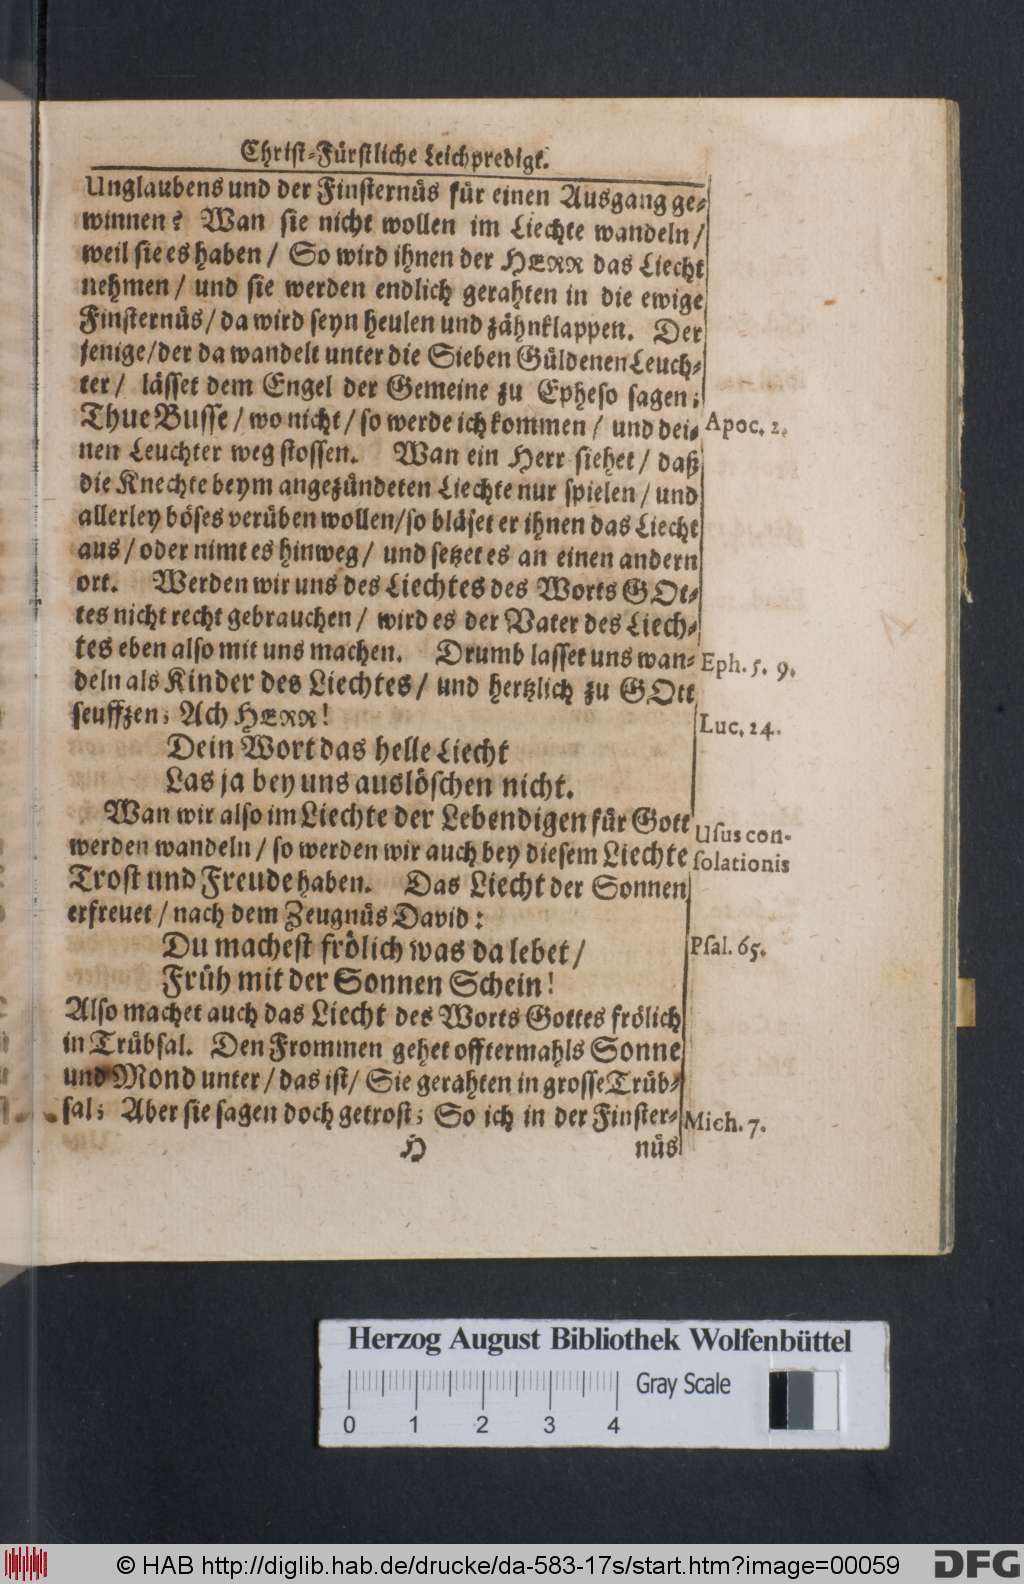 Christ-Fürstliche Leichpredigt.
Unglaubens und der Finsternüs für einen Ausgang ge-
winnen? Wan sie nicht wollen im Liechte wandeln/
weil sie es haben/ So wird ihnen der HERR das Liecht
nehmen/ und sie werden endlich gerahten in die ewige
Finsternüs/ da wird seyn heulen und zähnklappen. Der
jenige/ der da wandelt unter die Sieben Güldenen Leuch-
ter/ lässet dem Engel der Gemeine zu Epheso sagen;
Thue Busse/ wo nicht/ so werde ich kommen/ und dei-
Apoc. 2.
nen Leuchter weg stossen. Wan ein Herr siehet/ daß
die Knechte beym angezündeten Liechte nur spielen/ und
allerley böses verüben wollen/ so bläset er ihnen das Liecht
aus/ oder nimt es hinweg/ und setzet es an einen andern
ort. Werden wir uns des Liechtes des Worts GOt-
tes nicht recht gebrauchen/ wird es der Vater des Liech-
tes eben also mit uns machen. Drumb lasset uns wan-
Eph. 5. 9.
deln als Kinder des Liechtes/ und hertzlich zu GOtt
seuffzen; Ach HERR!
Luc. 24.
Dein Wort das helle Liecht
Las ja bey uns auslöschen nicht.
Wan wir also im Liechte der Lebendigen für Gott
Usus con-
werden wandeln/ so werden wir auch bey diesem Liechte
solationis
Trost und Freude haben. Das Liecht der Sonnen
erfreuet/ nach dem Zeugnüs David:
Du machest frölich was da lebet/
Psal. 65.
Früh mit der Sonnen Schein!
Also machet auch das Liecht des Worts Gottes frölich
in Trübsal. Den Frommen gehet offtermahls Sonne
und Mond unter/ das ist/ Sie gerahten in grosse Trüb-
sal; Aber sie sagen doch getrost; So ich in der Finster-
Mich. 7.
H
nüs
Herzog August Bibliothek Wolfenbüttel
Gray Scale
0 1 2 3 4
© HAB http://diglib.hab.de/drucke/da-583-17s/start.htm?image=00059
DFG